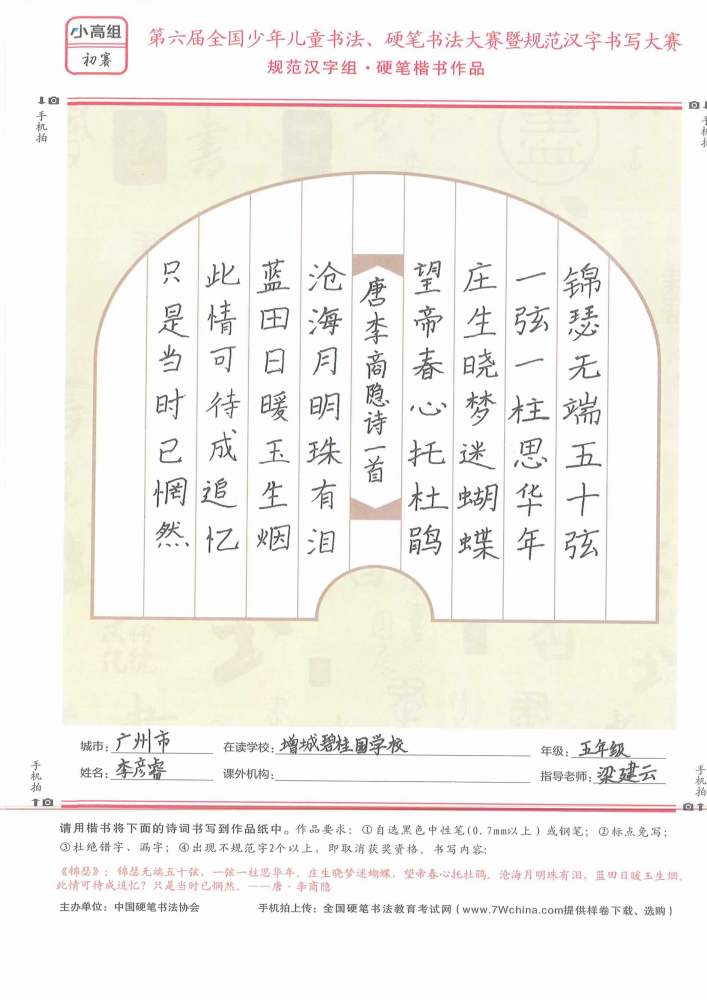 小高组
初赛
第六届全国少年儿童书法、硬笔书法大赛暨规范汉字书写大赛
规范汉字组·硬笔楷书作品
手机拍
手机拍
锦瑟无端五十弦
一弦一柱思华年
庄生晓梦迷蝴蝶
望帝春心托杜鹃
唐李商隐诗一首
沧海月明珠有泪
蓝田日暖玉生烟
此情可待成追忆
只是当时已惘然
城市：广州市 在读学校：增城碧桂园学校 年级：五年级
姓名：李彦睿 课外机构： 指导老师：梁建云
手机拍
手机拍
请用楷书将下面的诗词书写到作品纸中。作品要求：①自选黑色中性笔(0.7mm以上)或钢笔；②标点免写；
③杜绝错字、漏字；④出现不规范字2个以上，即取消获奖资格。书写内容：
《锦瑟》：锦瑟无端五十弦，一弦一柱思华年。庄生晓梦迷蝴蝶，望帝春心托杜鹃。沧海月明珠有泪，蓝田日暖玉生烟。
此情可待成追忆？只是当时已惘然。——唐·李商隐
主办单位：中国硬笔书法协会 手机拍上传：全国硬笔书法教育考试网（www.7Wchina.com提供样卷下载、选购）